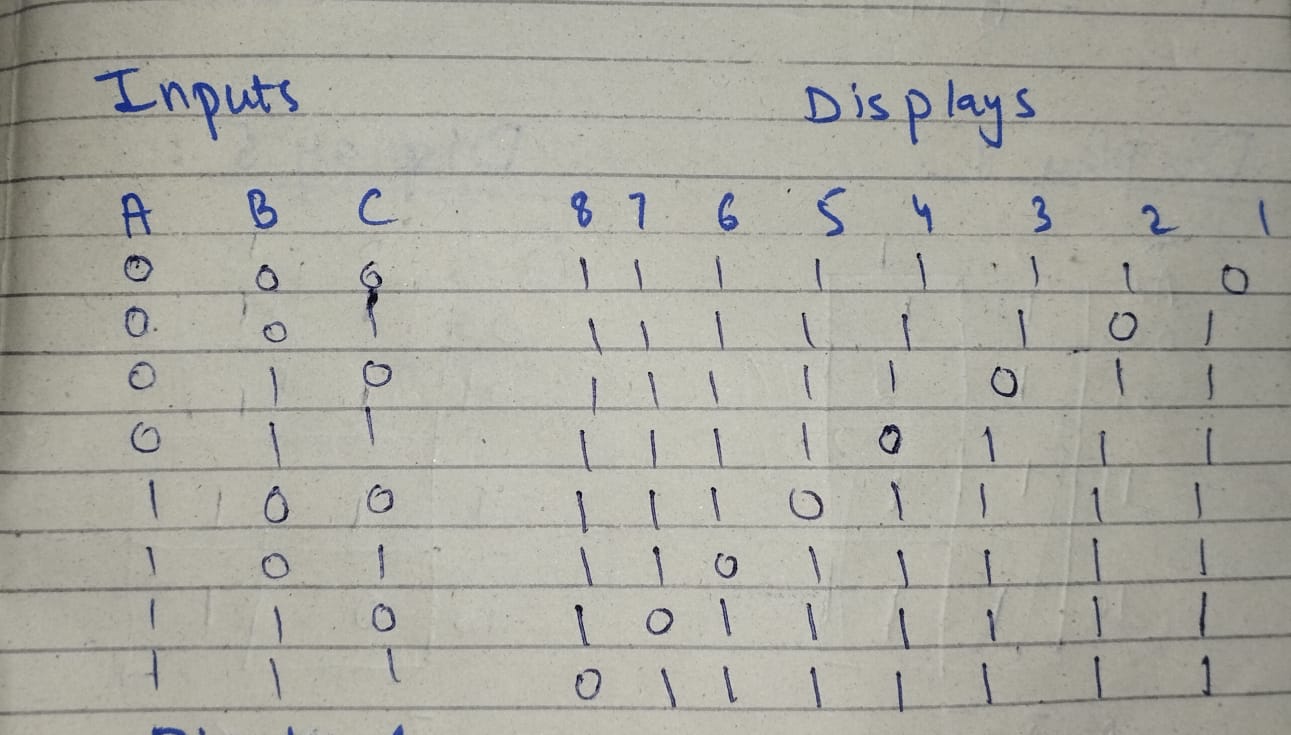 Inputs Displays
A B C 8 7 6 5 4 3 2 1
0 0 0 1 1 1 1 1 1 1 0
0 0 1 1 1 1 1 1 1 0 1
0 1 0 1 1 1 1 1 0 1 1
0 1 1 1 1 1 1 0 1 1 1
1 0 0 1 1 1 0 1 1 1 1
1 0 1 1 1 0 1 1 1 1 1
1 1 0 1 0 1 1 1 1 1 1
1 1 1 0 1 1 1 1 1 1 1